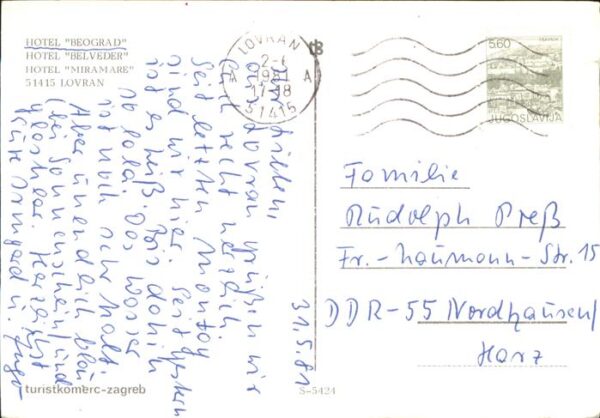 HOTEL "BEOGRAD"
HOTEL "BELVEDER"
HOTEL "MIRAMARE"
51415 LOVRAN
LOVRAN
A 1981 A
17-18
51415
5.60
JUGOSLAVIJA
31.5.81
Ihr Lieben,
aus Lovran grüßen wir
Euch recht herzlich.
Seit letzten Montag
sind wir hier. Seit gestern
ist es heiß. Bis dahin
so lala. Das Wasser
ist noch sehr kalt.
Aber unendlich blau
(bei Sonnenschein) und
Herzlichst
Eure Irmgard u. Ingo
Familie
Rudolph Preß
Fr.-Naumann-Str. 15
DDR-55 Nordhausen/
Harz
turistkomerc-zagreb
S-5424